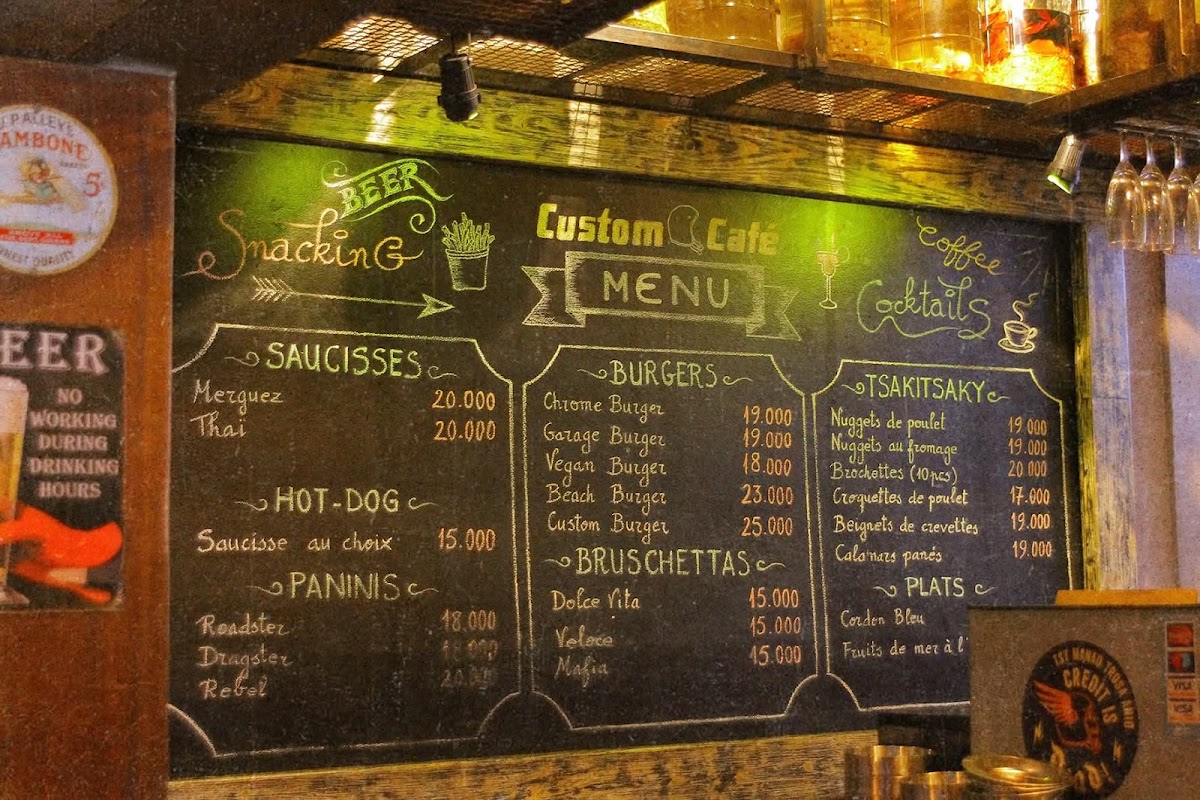 J.P.ALLEYS
AMBONE
5¢
FINEST QUALITY
EER
NO
WORKING
DURING
DRINKING
HOURS
BEER
Snacking
Custom Café
MENU
Coffee
Cocktails
SAUCISSES
Merguez 20.000
Thai 20.000
HOT-DOG
Saucisse au choix 15.000
PANINIS
Roadster 18.000
Dragster 18.000
Rebel 20.000
BURGERS
Chrome Burger 19.000
Garage Burger 19.000
Vegan Burger 18.000
Beach Burger 23.000
Custom Burger 25.000
BRUSCHETTAS
Dolce Vita 15.000
Veloce 15.000
Mafia 15.000
TSAKITSAKY
Nuggets de poulet 19.000
Nuggets au fromage 19.000
Brochettes (10pcs) 20.000
Croquettes de poulet 17.000
Beignets de crevettes 19.000
Calamars panés 19.000
PLATS
Cordon Bleu
Fruits de mer à l'
TSY MANAO TROSA
CREDIT IS
VISA
VISA